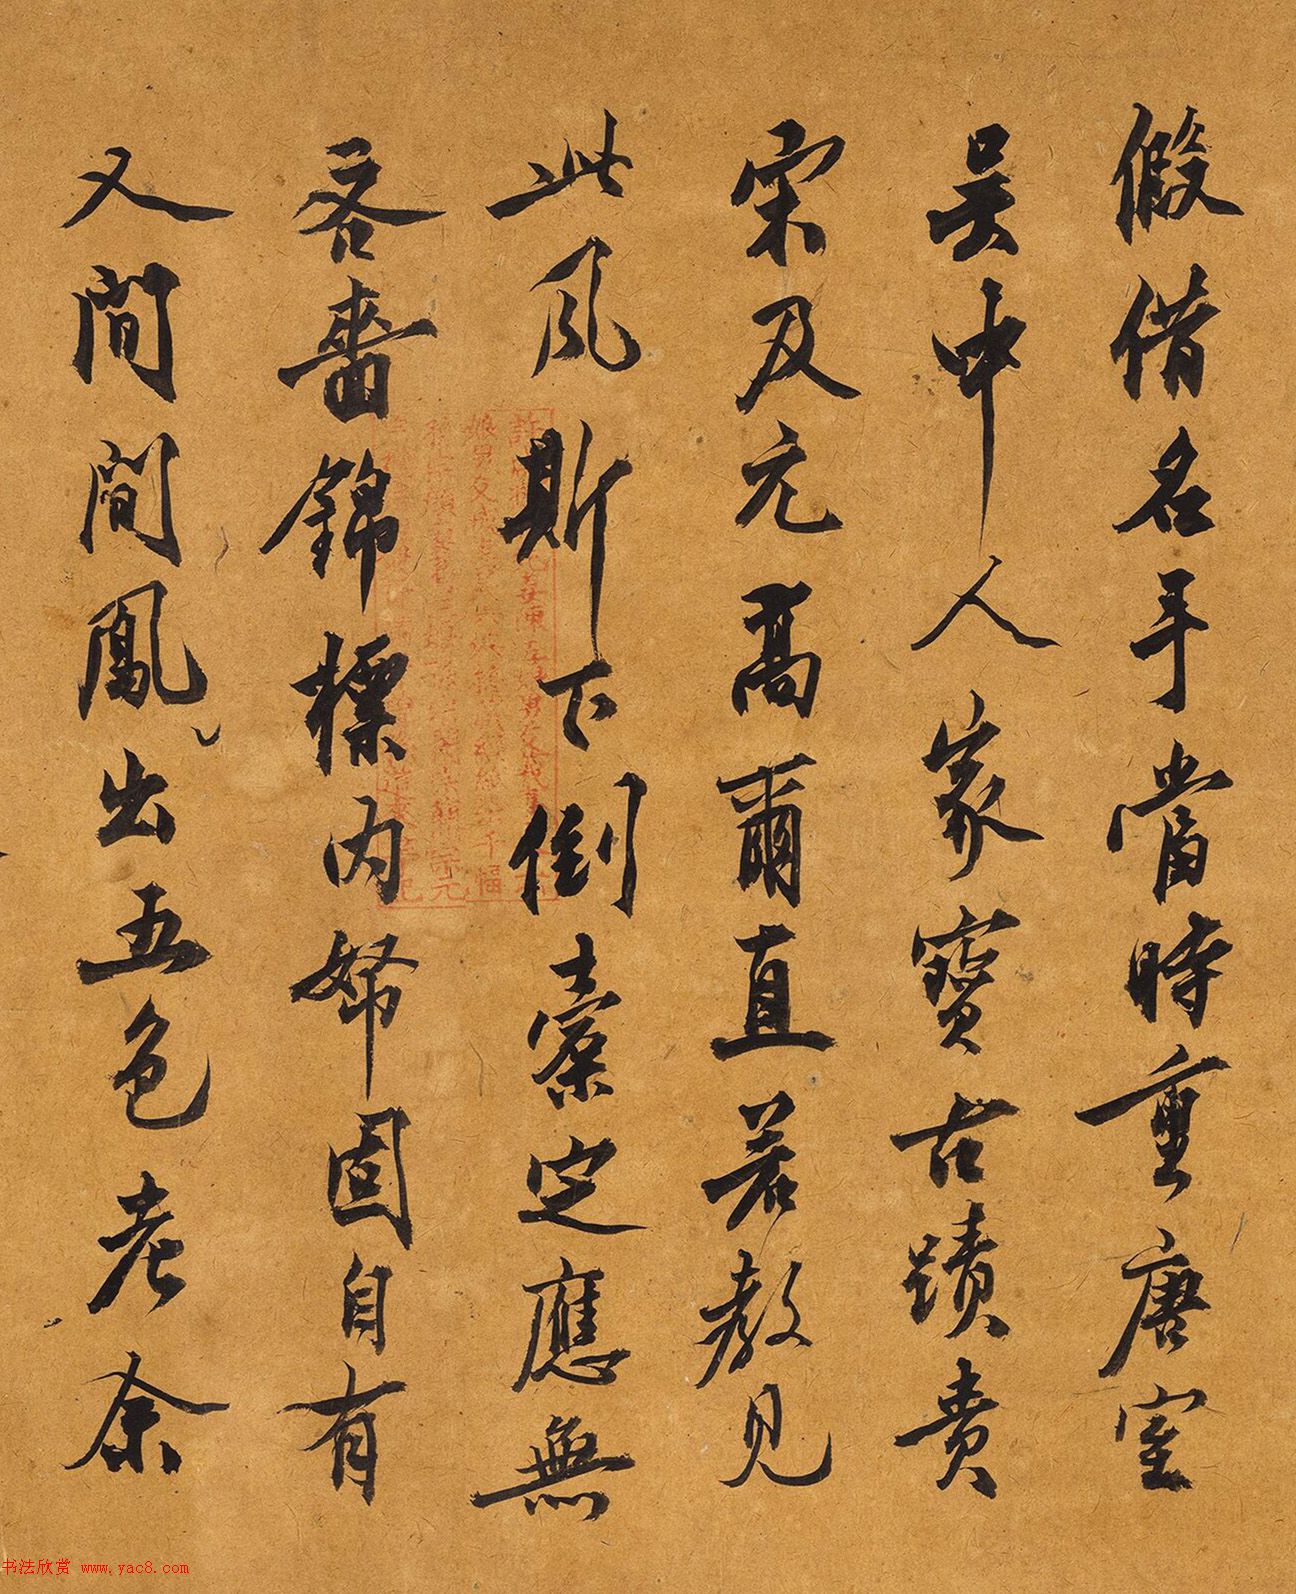 假借名手當時重唐室
吴中人家寶古蹟贵
宋及元高爾直若教見
此風斯下倒橐定應無
吝嗇錦標内帑固自有
又間間鳳出五色老余
书法欣赏 www.yac8.com